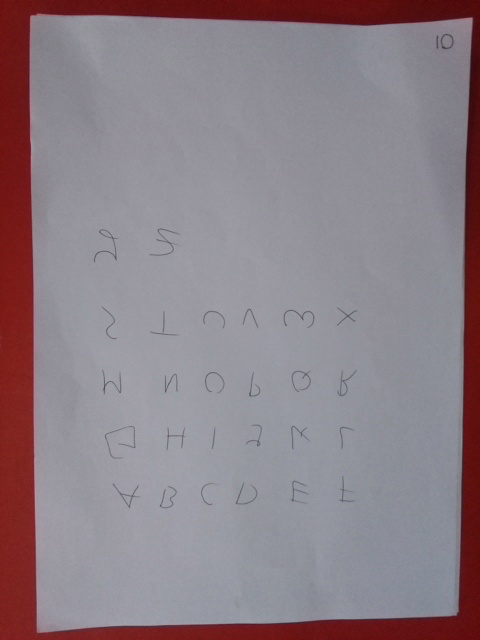 10
A B C D E F
G H I J K L
M N O P Q R
S T U V W X
Y Z